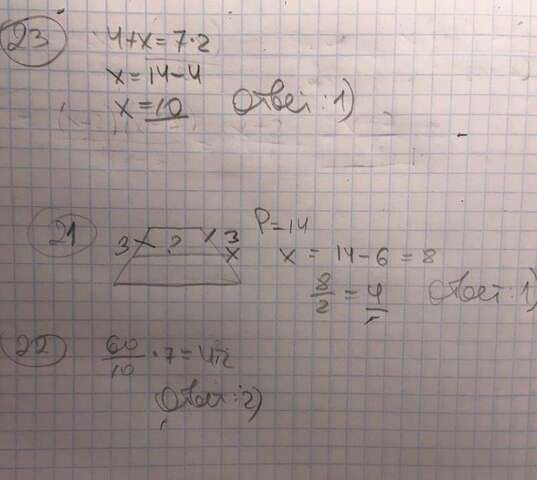 23
4+x=7·2
x=14-4
x=10 Ответ: 1)
21
3 ? 3
x
P=14
x = 14-6 = 8
8/2 = 4 Ответ: 1)
22
60/10 · 7=42
Ответ: 2)